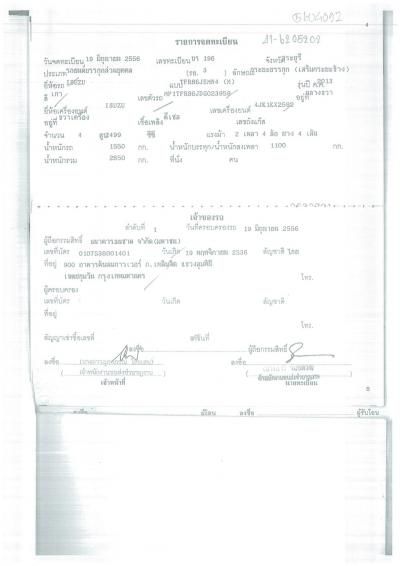 4
รายการจดทะเบียน
วันจดทะเบียน 19 มิถุนายน 2556 เลขทะเบียน บร 196 จังหวัด สระบุรี
ประเภท รถยนต์บรรทุกส่วนบุคคล (รย. 3 ) ลักษณะ กระบะบรรทุก (เสริมกระบะข้าง)
ยี่ห้อรถ ISUZU แบบ รุ่นปี ค.ศ. 2013
สี เทา เลขตัวรถ อยู่ที่
ยี่ห้อเครื่องยนต์ ISUZU เลขเครื่องยนต์
อยู่ที่ ขวาเครื่อง เชื้อเพลิง ดีเซล เลขถังแก๊ส
จำนวน 4 สูบ 2499 ซีซี แรงม้า 2 เพลา 4 ล้อ ยาง 4 เส้น
น้ำหนักรถ 1550 กก. น้ำหนักบรรทุก/น้ำหนักลงเพลา 1100 กก.
น้ำหนักรวม 2650 กก. ที่นั่ง คน
เจ้าของรถ
ลำดับที่ 1 วันที่ครอบครองรถ 19 มิถุนายน 2556
ผู้ถือกรรมสิทธิ์ ธนาคารธนชาต จำกัด (มหาชน)
เลขที่บัตร 0107536001401 วันเกิด 19 พฤศจิกายน 2536 สัญชาติ ไทย
ที่อยู่ 900 อาคารต้นสนทาวเวอร์ ถ.เพลินจิต แขวงลุมพินี
เขตปทุมวัน กรุงเทพมหานคร โทร.
ผู้ครอบครอง
เลขที่บัตร วันเกิด สัญชาติ
ที่อยู่
โทร.
สัญญาเช่าซื้อเลขที่ ลงวันที่
ลงชื่อ ผู้ถือกรรมสิทธิ์
ลงชื่อ ลงชื่อ
เจ้าพนักงานขนส่งชำนาญงาน
เจ้าหน้าที่ นายทะเบียน
5
ลงชื่อ ผู้โอน ลงชื่อ ผู้รับโอน